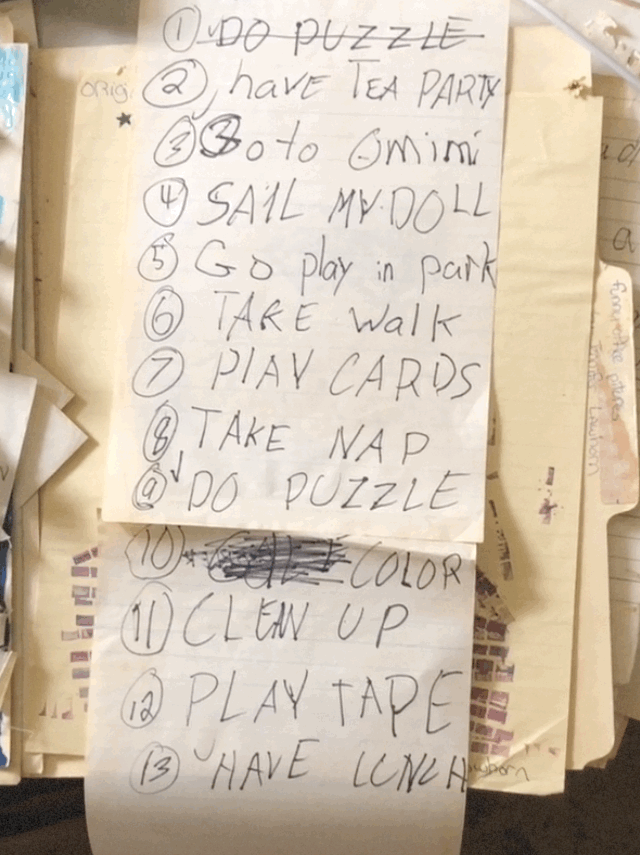 ① DO PUZZLE
② have TEA PARTY
③ Go to Omimi
④ SAIL MY DOLL
⑤ Go play in park
⑥ TAKE walk
⑦ PlAY CARDS
⑧ TAKE NAP
⑨ DO PUZZLE
⑩ COLOR
⑪ CLEAN UP
⑫ PLAY TAPE
⑬ HAVE LUNCH
ORIG